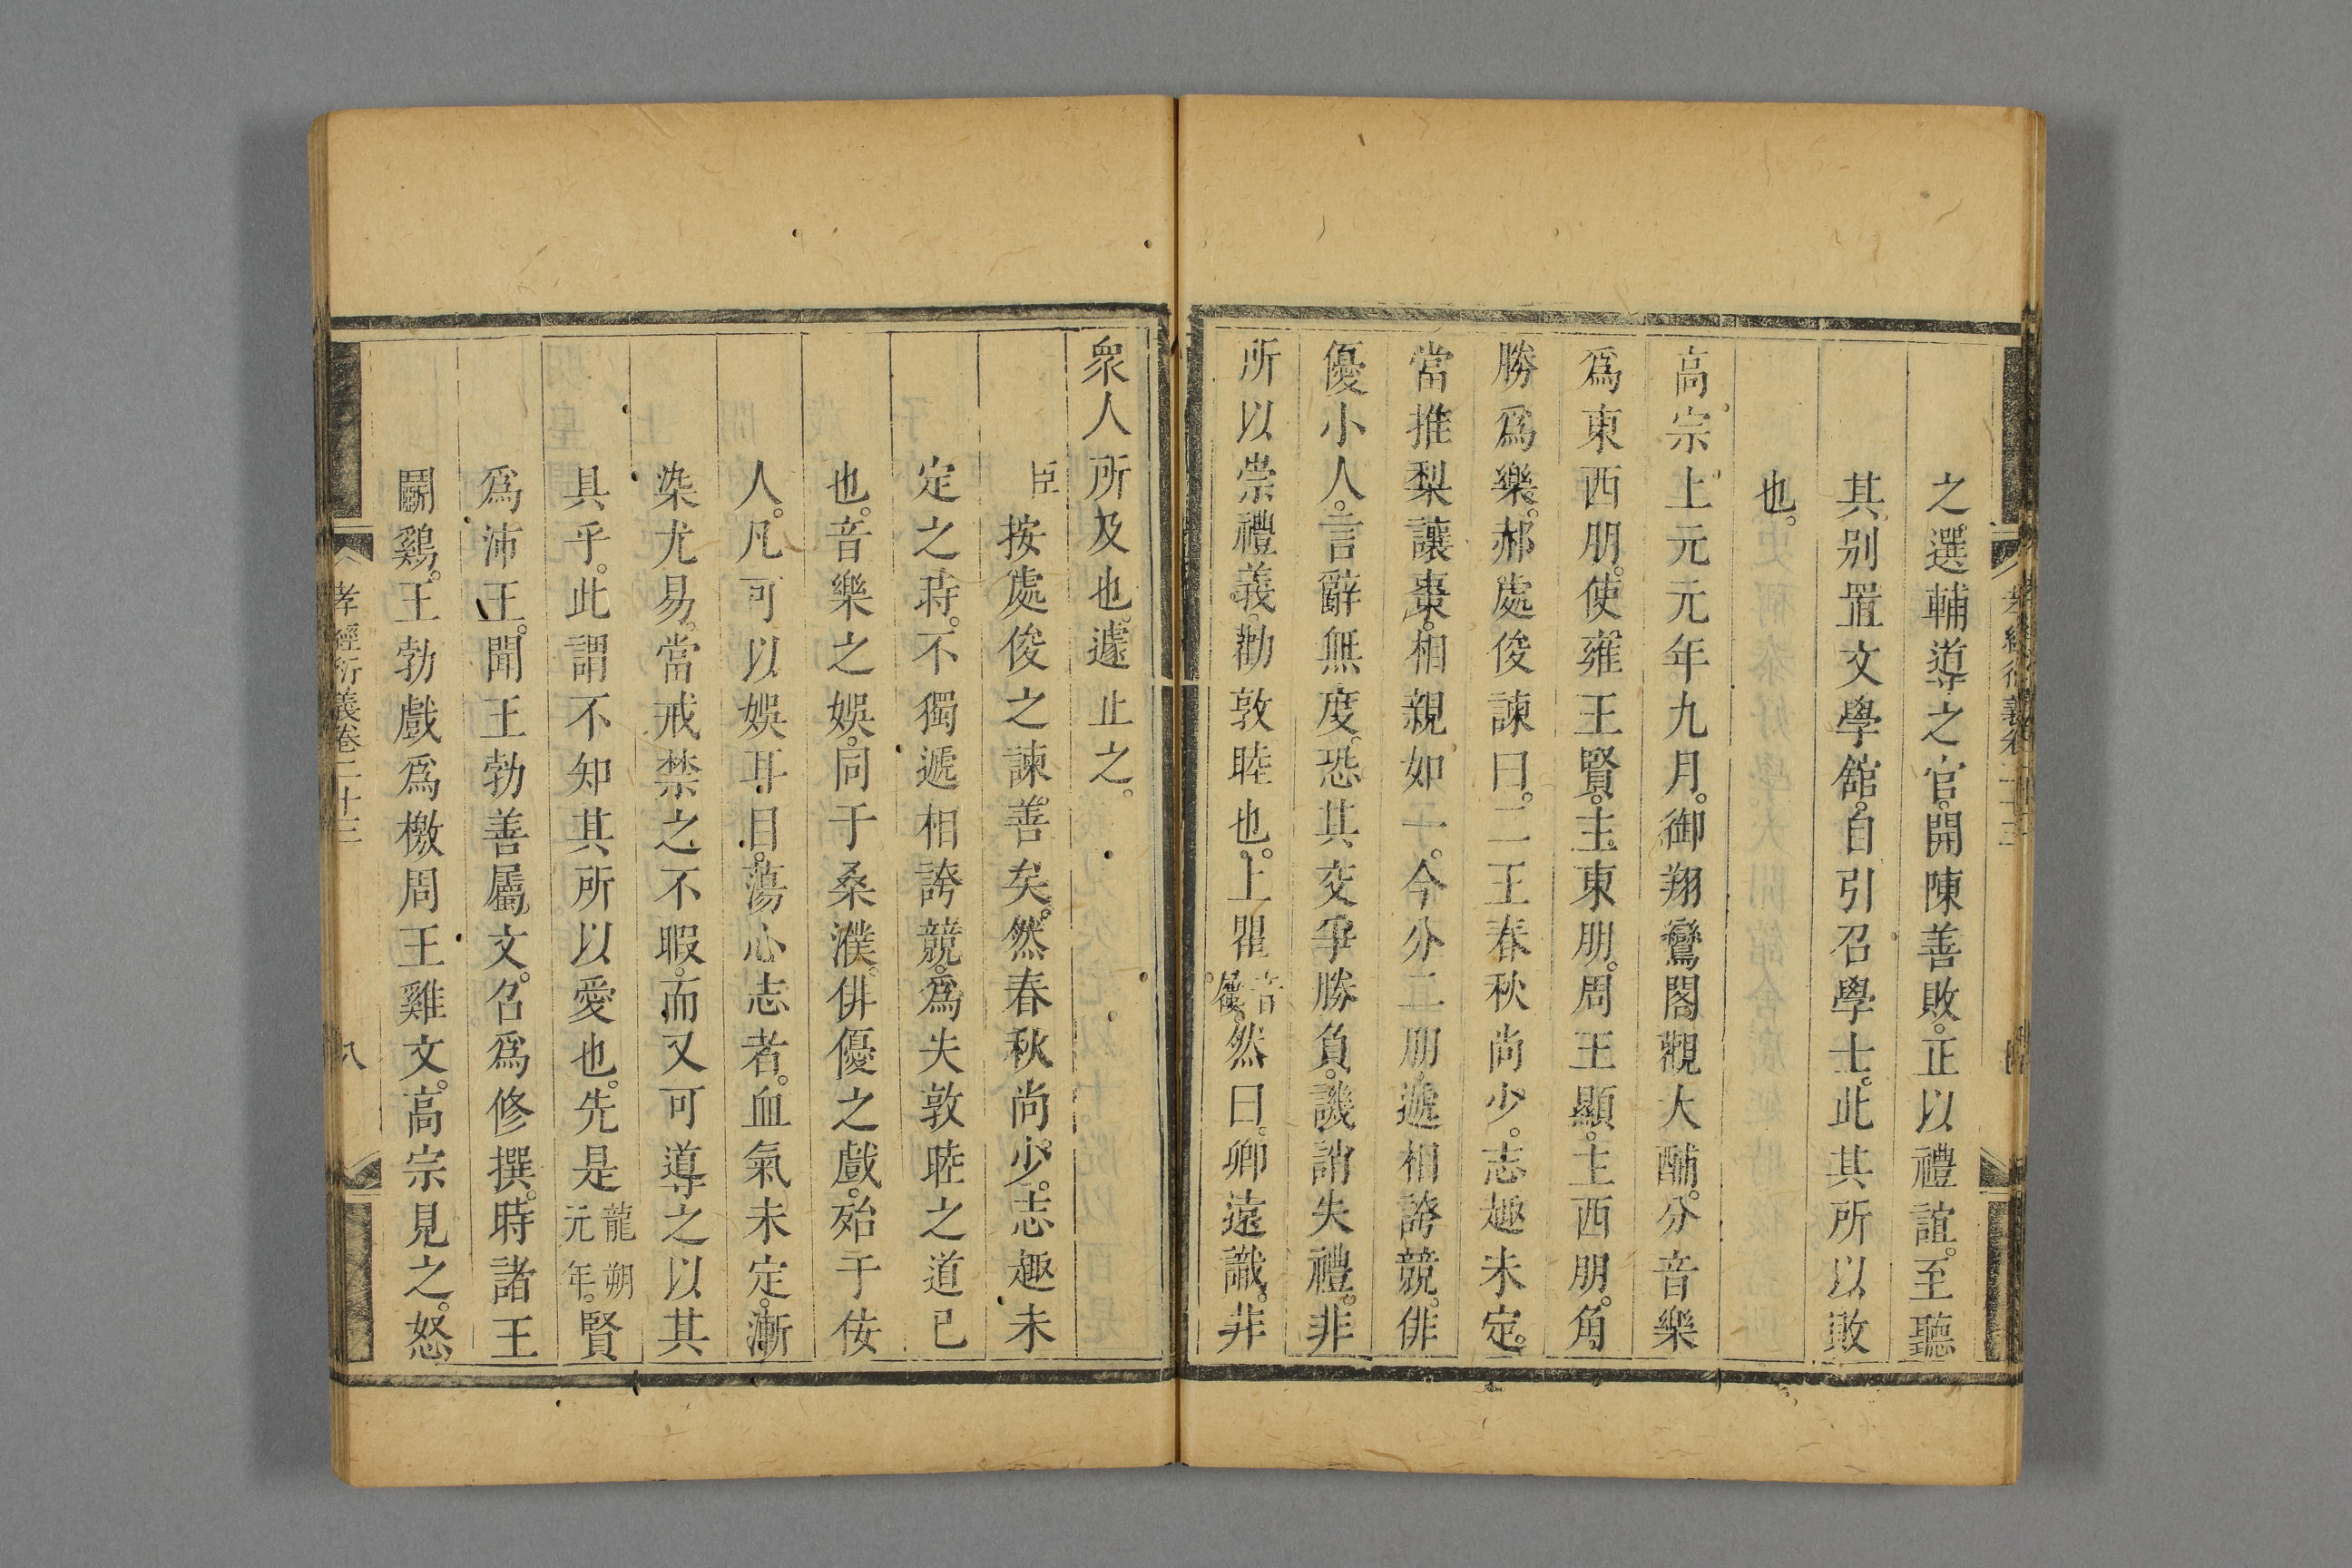 之選輔導之官。開陳善敗。正以禮誼。至聽
其別置文學舘。自引召學士。此其所以敗
也。
高宗上元元年九月。御翔鸞閣觀大酺。分音樂
爲東西朋。使雍王賢。主東朋。周王顯。主西朋。角
勝爲樂。郝處俊諫曰。二王春秋尚少。志趣未定。
當推梨讓棗。相親如一。今分二朋。遞相誇競。俳
優小人。言辭無度。恐其交爭勝負。譏誚失禮。非
所以崇禮義。勸敦睦也。上瞿音屨。然曰。卿遠識。非
衆人所及也。遽止之。
臣按處俊之諫善矣。然春秋尚少。志趣未
定之時。不獨遞相誇競。爲失敦睦之道已
也。音樂之娛。同于桑濮。俳優之戲。殆于侫
人。凡可以娛耳目。蕩心志者。血氣未定。漸
染尤易。當戒禁之不暇。而又可導之以其
具乎。此謂不知其所以愛也。先是龍朔元年。賢
爲沛王。聞王勃善屬文。召爲修撰。時諸王
鬭鷄。王勃戲爲檄周王雞文。高宗見之。怒
孝經衍義卷二十三
八